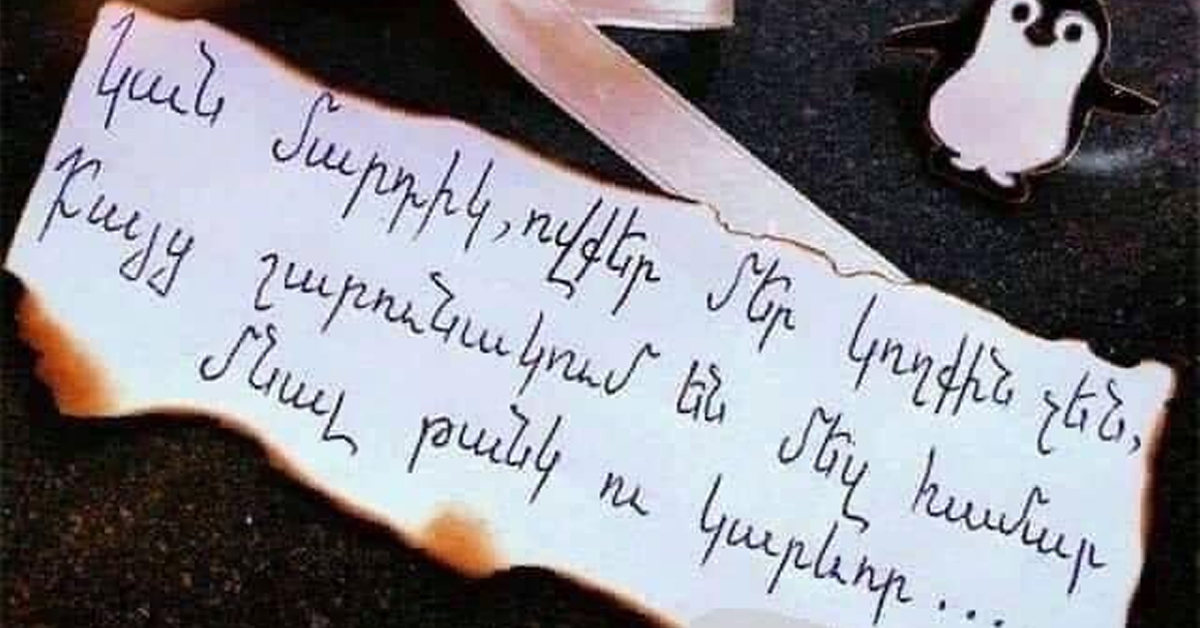 Կան մարդիկ, ովքեր մեր կողքին չեն,
Բայց շարունակում են մեզ համար
մնալ թանկ ու կարևոր...